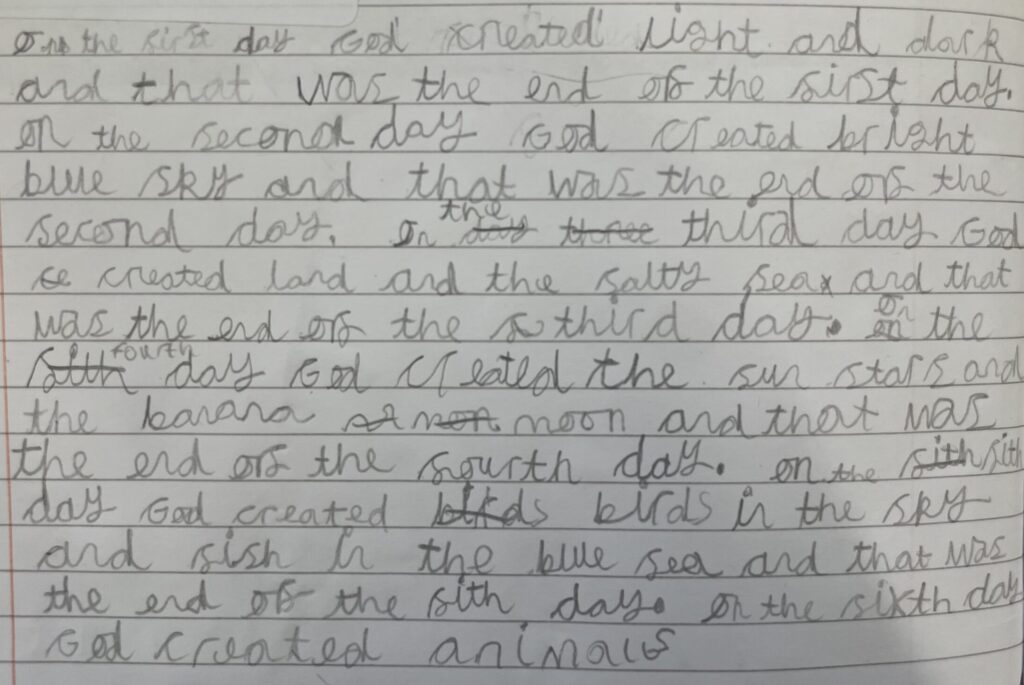 on the first day God created light and dark
and that was the end off the first day.
on the second day God created bright
blue sky and that was the end off the
second day. on the third day God
created land and the salty sea and that
was the end off the third day. on the
fourth day God created the sun stars and
the banana moon and that was
the end off the fourth day. on the fith
day God created birds in the sky
and fish in the blue sea and that was
the end off the fith day. on the sixth day
God created animals